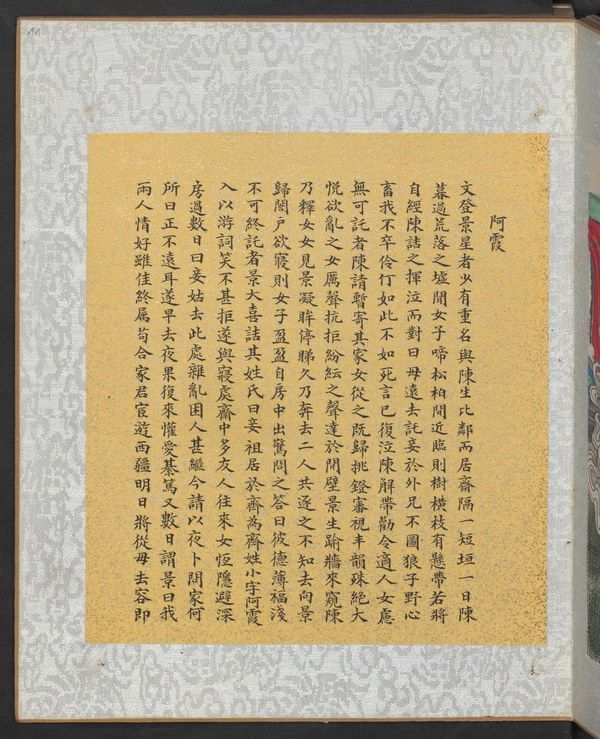 阿霞
文登景星者少有重名與陳生比鄰而居齋隔一短垣一日陳
暮過荒落之墟聞女子啼松柏間近臨則樹橫枝有懸帶若將
自經陳詰之揮泣而對曰母遠去託妾於外兄不圖狼子野心
畜我不卒伶仃如此不如死言已復泣陳解帶勸令適人女慮
無可託者陳請暫寄其家女從之既歸挑鐙審視丰韻殊絕大
悅欲亂之女厲聲抗拒紛紜之聲達於間壁景生踰牆來窺陳
乃釋女女見景凝眸停睇久乃奔去二人共逐之不知去向景
歸闔戶欲寢則女子盈盈自房中出驚問之答曰彼德薄福淺
不可終託者景大喜詰其姓氏曰妾祖居於齊為齊姓小字阿霞
入以游詞笑不甚拒遂與寢處齋中多友人往來女恒隱避深
房過數日曰妾姑去此處雜亂困人甚繼今請以夜卜問家何
所曰正不遠耳遂早去夜果復來懽愛綦篤又數日謂景曰我
兩人情好雖佳終屬苟合家君宦遊西疆明日將從母去容即